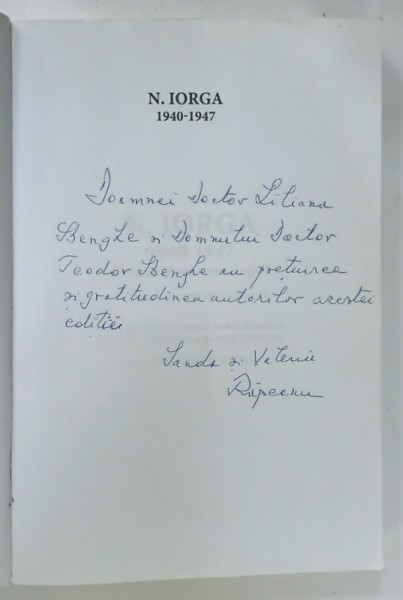 N. IORGA
1940-1947
Doamnei Doctor Liliana
Benghe și Domnului Doctor
Teodor Benghe cu prețuirea
și gratitudinea autorilor acestei
ediții
Sanda și Valeriu
Râpeanu